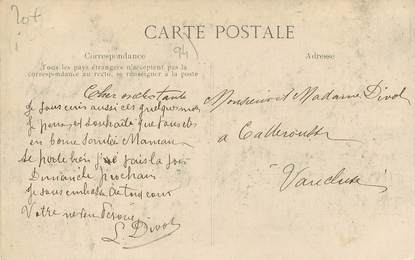 20f
CARTE POSTALE
94
Correspondance
Adresse
Tous les pays étrangers n'acceptent pas la
correspondance au recto, se renseigner à la poste
Cher oncle tante
Je vous cris aussi ces quelques mots
Je pense et souhaite que vous êtes
en bonne santé Maman
se porte bien
Dimanche prochain
Je vous embrasse
Votre neveu
L Divol
Monsieur et Madame Divol
a Caderousse
Vaucluse